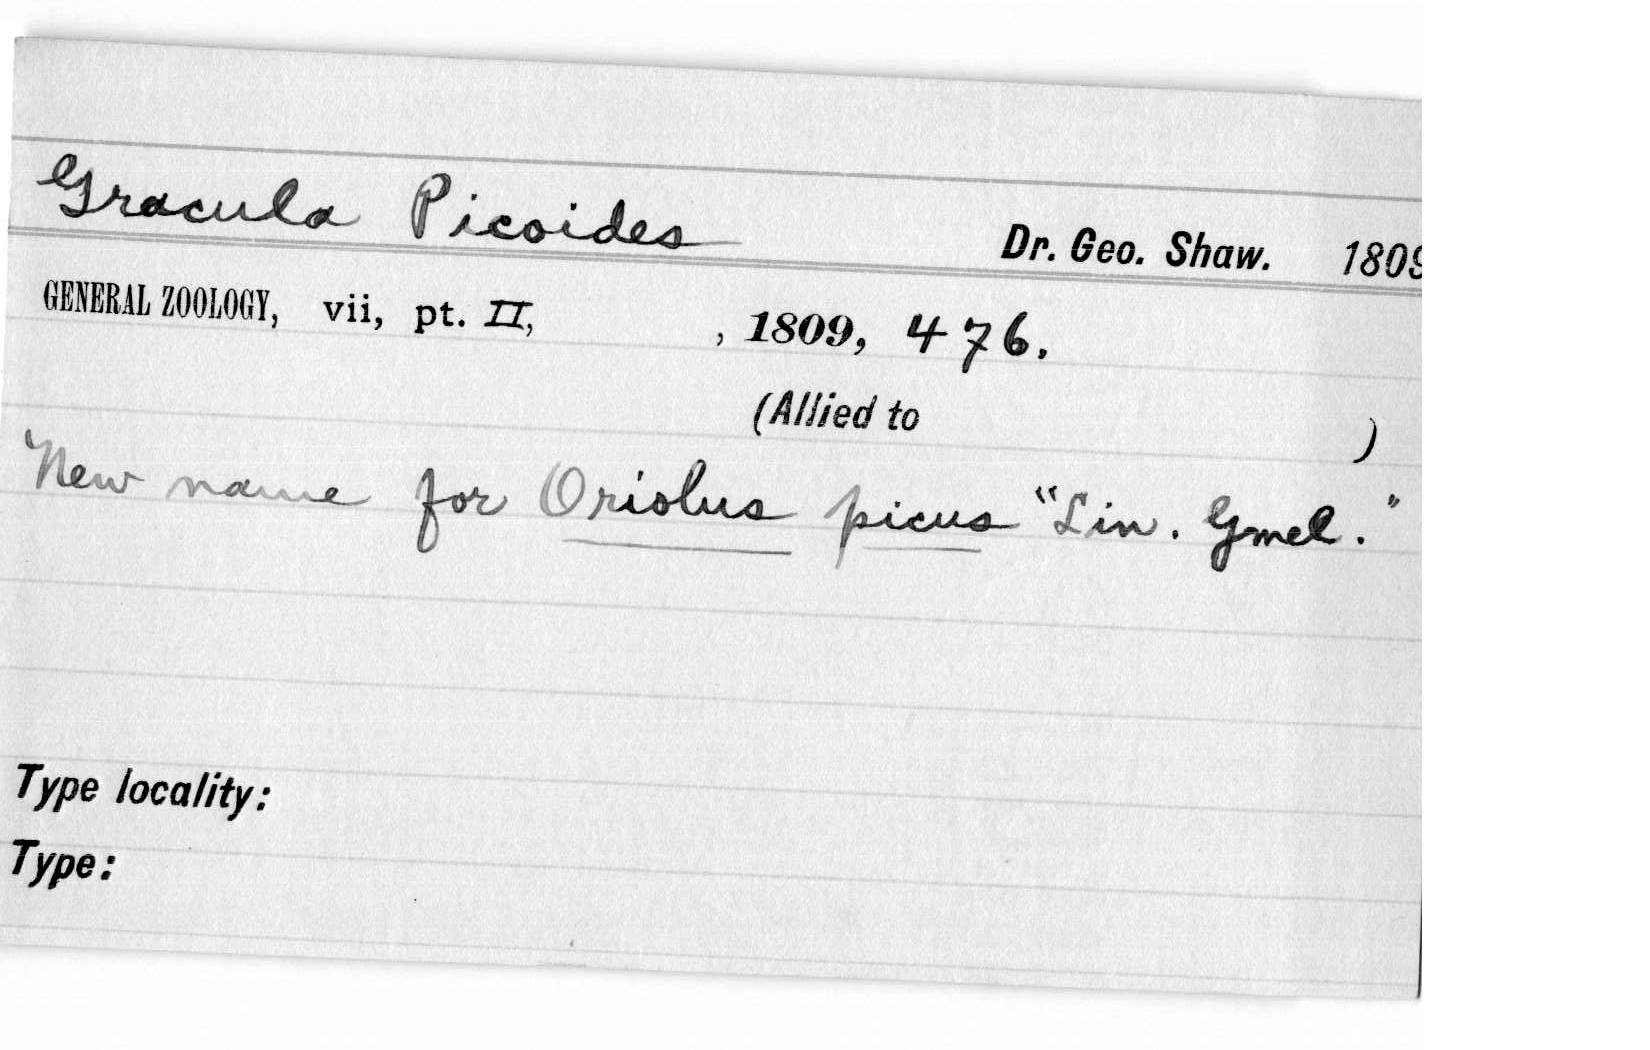 Gracula Picoides Dr. Geo. Shaw. 1809
GENERAL ZOOLOGY, vii, pt. II, , 1809, 476.
(Allied to )
New name for Oriolus picus "Lin. Gmel."
Type locality:
Type: